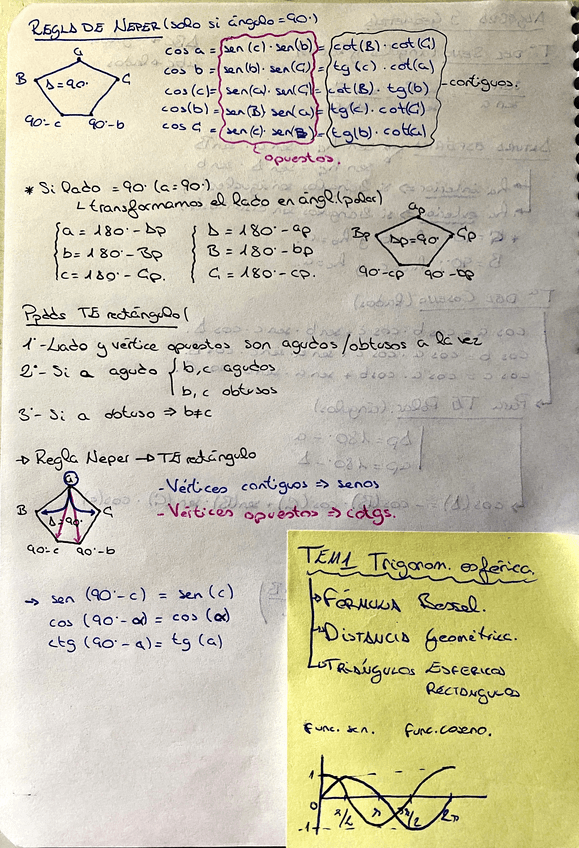 REGLA DE NEPER (solo si ángulo = 90º)
a
B A = 90º C
90º-c 90º-b
cos a = sen(c) · sen(b) = cot(B) · cot(C)
cos b = sen(b) · sen(C) = tg(c) · cot(a)
cos(c) = sen(a) · sen(C) = cot(B) · tg(b)
cos(b) = sen(B) sen(a) = tg(c) · cot(C)
cos C = sen(c) · sen(B) = tg(b) · cot(a)
- contiguos.
opuestos.
* Si lado = 90º (a = 90º)
↳ transformamos el lado en ángl. (polar)
a = 180º - Ap A = 180º - ap
b = 180º - Bp B = 180º - bp
c = 180º - Cp. C = 180º - cp.
ap
Bp Ap = 90º Cp
90º-cp 90º-bp
Ppdds TE rectángulo
1º- Lado y vértice opuestos son agudos/obtusos a la vez
2º- Si a agudo b, c agudos
b, c obtusos
3º- Si a obtuso ⇒ b≠c
→ Regla Neper → TE rectángulo
a
B A = 90º C
90º-c 90º-b
- Vértices contiguos ⇒ senos
- Vértices opuestos ⇒ cotgs.
→ sen (90º - c) = sen (c)
cos (90º - α) = cos (α)
ctg (90º - a) = tg (a)
TEM1 Trigonom. esférica.
→ FÓRMULA Bessel.
→ DISTANCIA Geométrica.
→ TRIÁNGULOS ESFERICOS
RECTANGULOS
Func. sen. Func. coseno.
1
0
π/2 π 3π/2 2π
-1